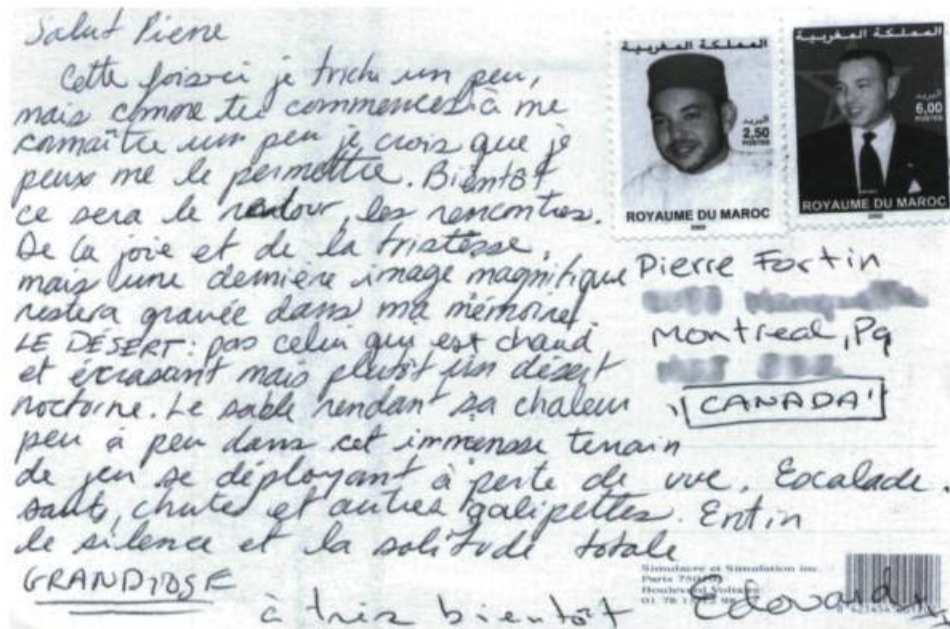 Salut Pierre
Cette fois-ci je triche un peu,
mais comme tu commences à me
connaître un peu je crois que je
peux me le permettre. Bientôt
ce sera le retour, les rencontres.
De la joie et de la tristesse,
mais une dernière image magnifique
restera gravée dans ma mémoire
LE DÉSERT: pas celui qui est chaud
et écrasant mais plutôt un désert
nocturne. Le sable rendant sa chaleur
peu à peu dans cet immense terrain
de jeu se déployant à perte de vue. Escalade,
sauts, chutes et autres galipettes. Enfin
le silence et la solitude totale
GRANDIOSE
à très bientôt Edouard
المملكة المغربية
البريد
2,50
POSTES
ROYAUME DU MAROC
المملكة المغربية
6,00
البريد
POSTES
ROYAUME DU MAROC
Pierre Fortin
Montreal, Pq
"CANADA"
Simulacre et Simulation inc.
Paris
Boulevard Voltaire